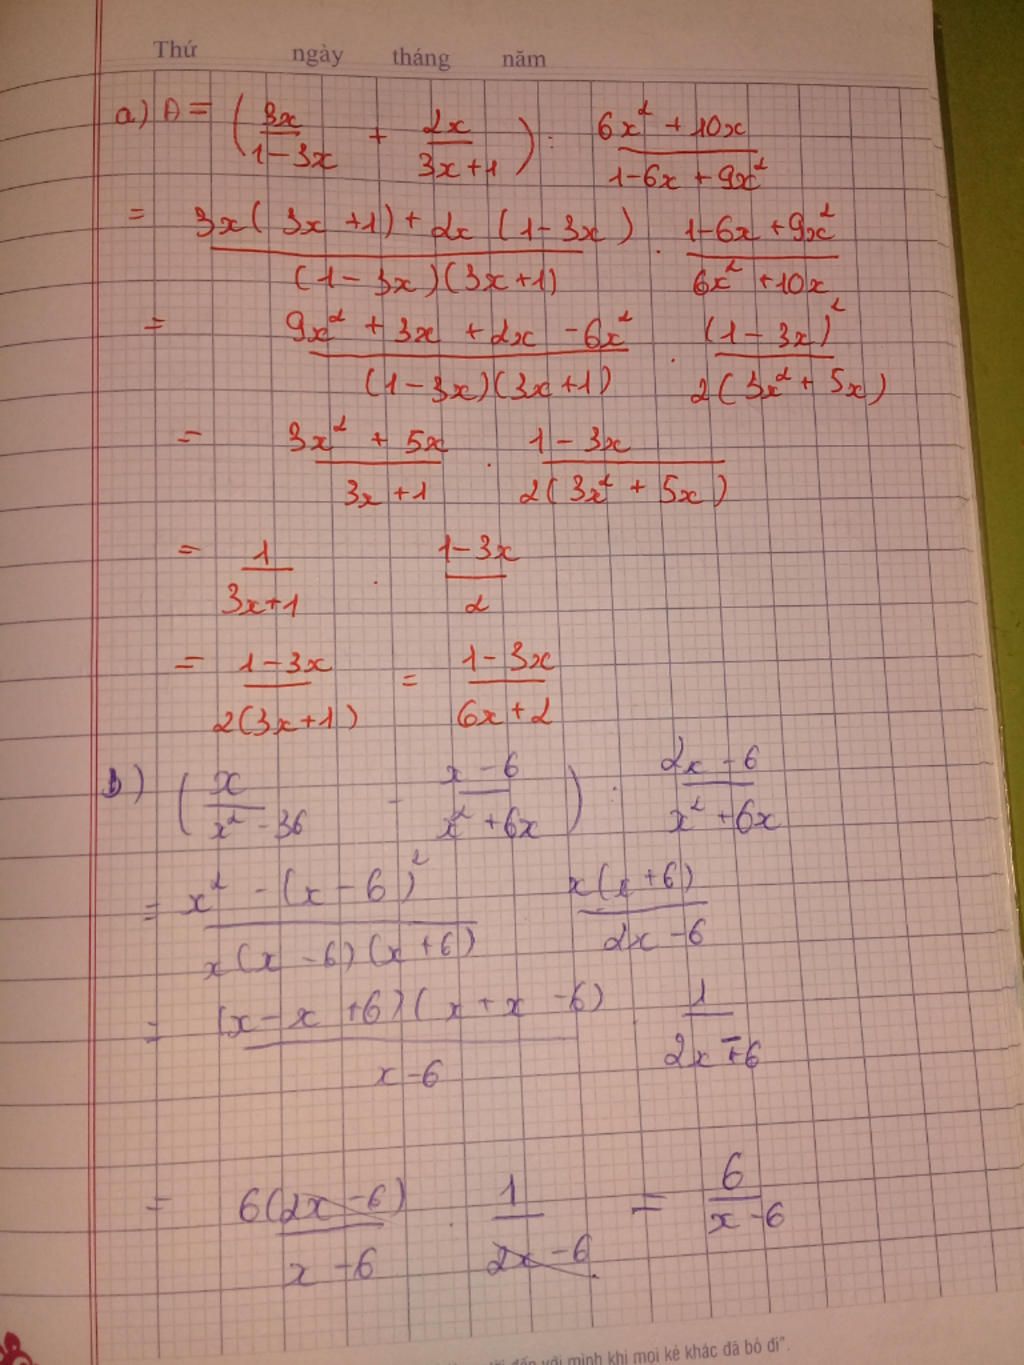 Thứ ngày tháng năm
a) A = (3x/(1-3x) + 2x/(3x+1)) : (6x² + 10x)/(1-6x + 9x²)
= (3x(3x+1) + 2x(1-3x))/((1-3x)(3x+1)) . (1-6x+9x²)/(6x² + 10x)
= (9x² + 3x + 2x - 6x²)/((1-3x)(3x+1)) . (1-3x)²/(2(3x² + 5x))
= (3x² + 5x)/(3x+1) . (1-3x)/(2(3x² + 5x))
= 1/(3x+1) . (1-3x)/2
= (1-3x)/(2(3x+1)) = (1-3x)/(6x+2)
b) (x/(x² - 36) - (x-6)/(x² + 6x)) : (2x-6)/(x² + 6x)
= (x² - (x-6)²)/(x(x-6)(x+6)) . x(x+6)/(2x-6)
= (x-x+6)(x+x-6)/(x-6) . 1/(2x-6)
= 6(2x-6)/(x-6) . 1/(2x-6) = 6/(x-6)
với mình khi mọi kẻ khác đã bỏ đi".